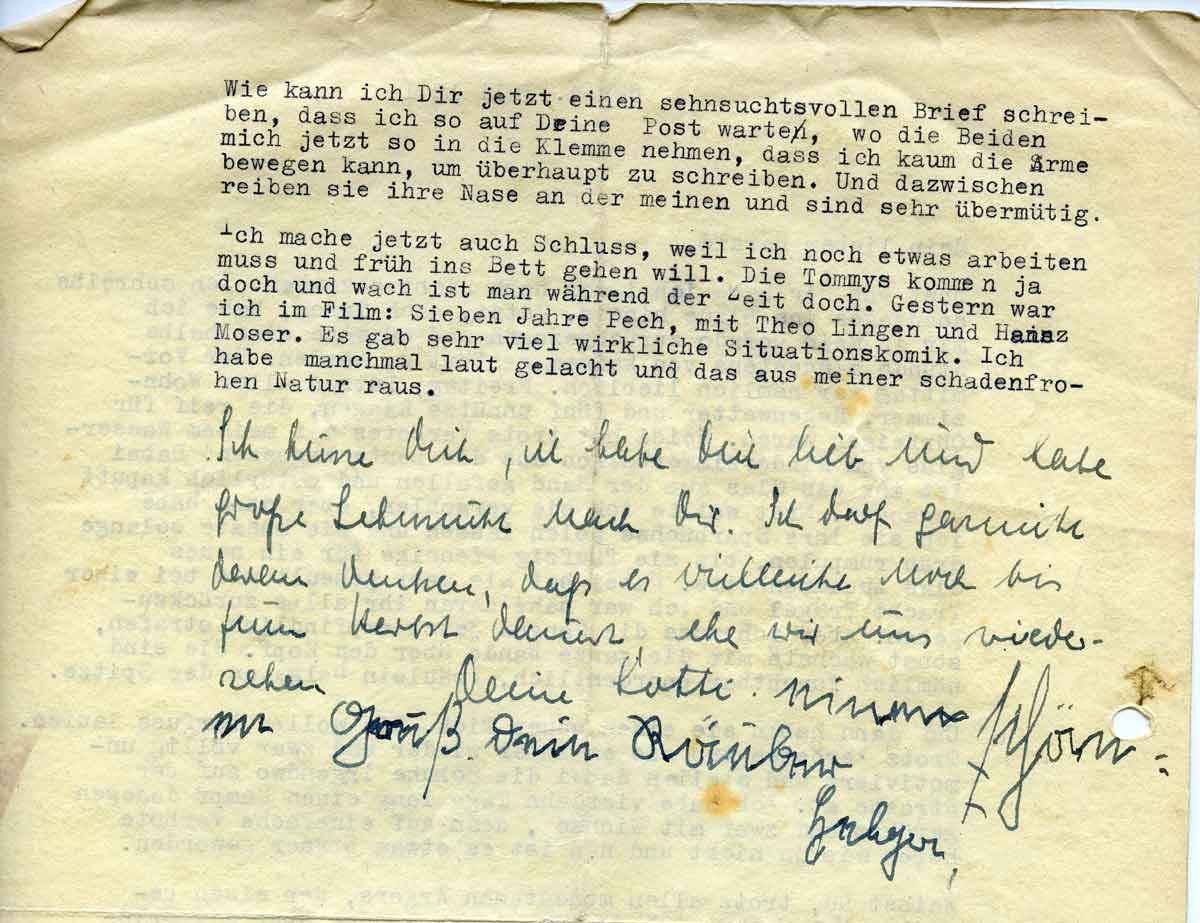 Wie kann ich Dir jetzt einen sehnsuchtsvollen Brief schrei-
ben, dass ich so auf Deine Post warte, wo die Beiden
mich jetzt so in die Klemme nehmen, dass ich kaum die Arme
bewegen kann, um überhaupt zu schreiben. Und dazwischen
reiben sie ihre Nase an der meinen und sind sehr übermütig.
Ich mache jetzt auch Schluss, weil ich noch etwas arbeiten
muss und früh ins Bett gehen will. Die Tommys kommen ja
doch und wach ist man während der Zeit doch. Gestern war
ich im Film: Sieben Jahre Pech, mit Theo Lingen und Hans
Moser. Es gab sehr viel wirkliche Situationskomik. Ich
habe manchmal laut gelacht und das aus meiner schadenfro-
hen Natur raus.
Ich küsse Dich, ich habe Dich lieb und habe
große Sehnsucht nach Dir. Ich darf garnicht
daran denken, daß es vielleicht noch bis
zum Herbst dauert, ehe wir uns wieder-
sehen Deine Lotti
Gruß Dein Räuber